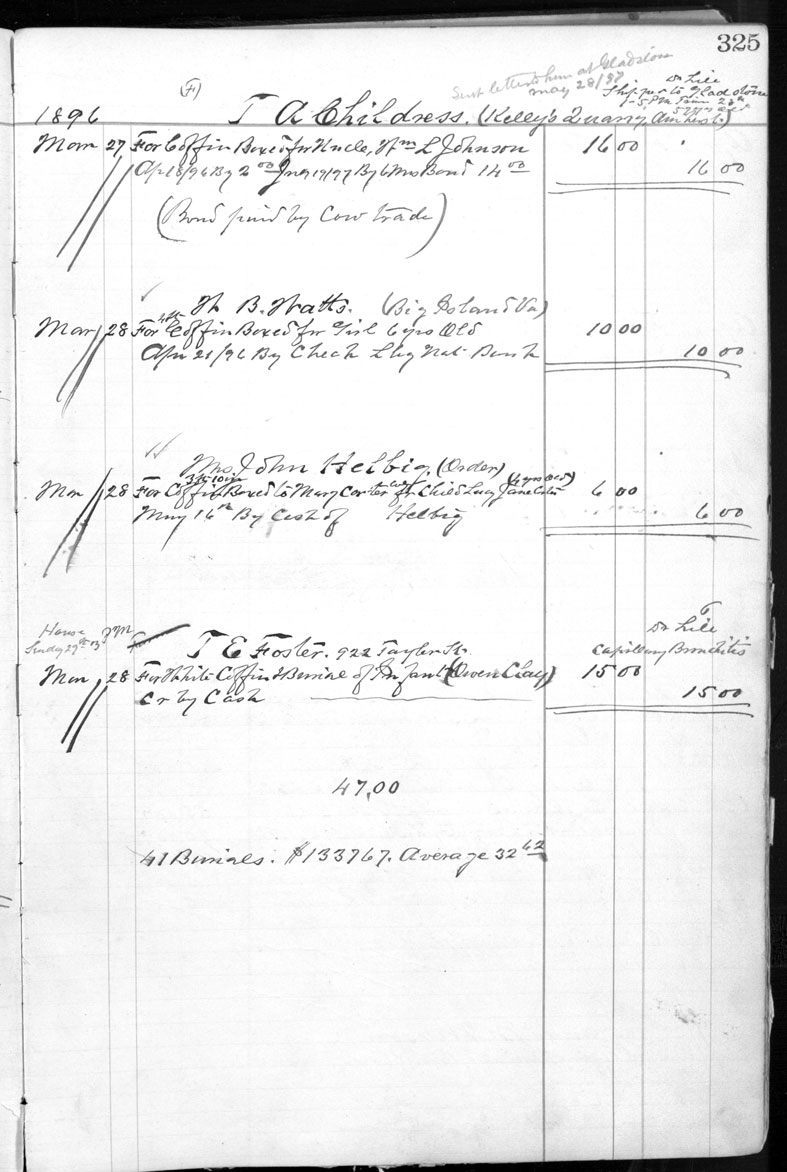 325
(F)
Sent letter to him at Gladstone
May 28/97
Dr Lile
Ship per to Gladstone
1-5 PM Train 28th
57 yrs old
1896 T A Childress. (Kelly's Quarry, Amherst)
Mar 27 For Coffin Boxed for Uncle, Wm L Johnson 16 00
Apr 18/96 By 2 00 Jny 19/97 By 6 Mo Bond 14 00 16 00
(Bond paid by Cow trade)
W B. Watts. (Big Island Va)
4ft
Mar 28 For Coffin Boxed for Girl 6 yrs Old 10 00
Apr 21/96 By Check Lbg Nat Bank 10 00
Mrs. John Helbig. (Order)
3ft 10in (4 yrs Old)
Mar 28 For Coffin Boxed to Mary Carter for Child Lucy Jane Carter 6 00
May 16th By Cash of Helbig 6 00
House
Sunday 29th 3 PM
T E Foster. 922 Taylor St.
Dr Lile
Capillary Bronchitis
Mar 28 For White Coffin & Burial of Infant (Owen Clay) 15 00
Cr by Cash 15 00
47,00
41 Burials. $1337 67. Average 32 62